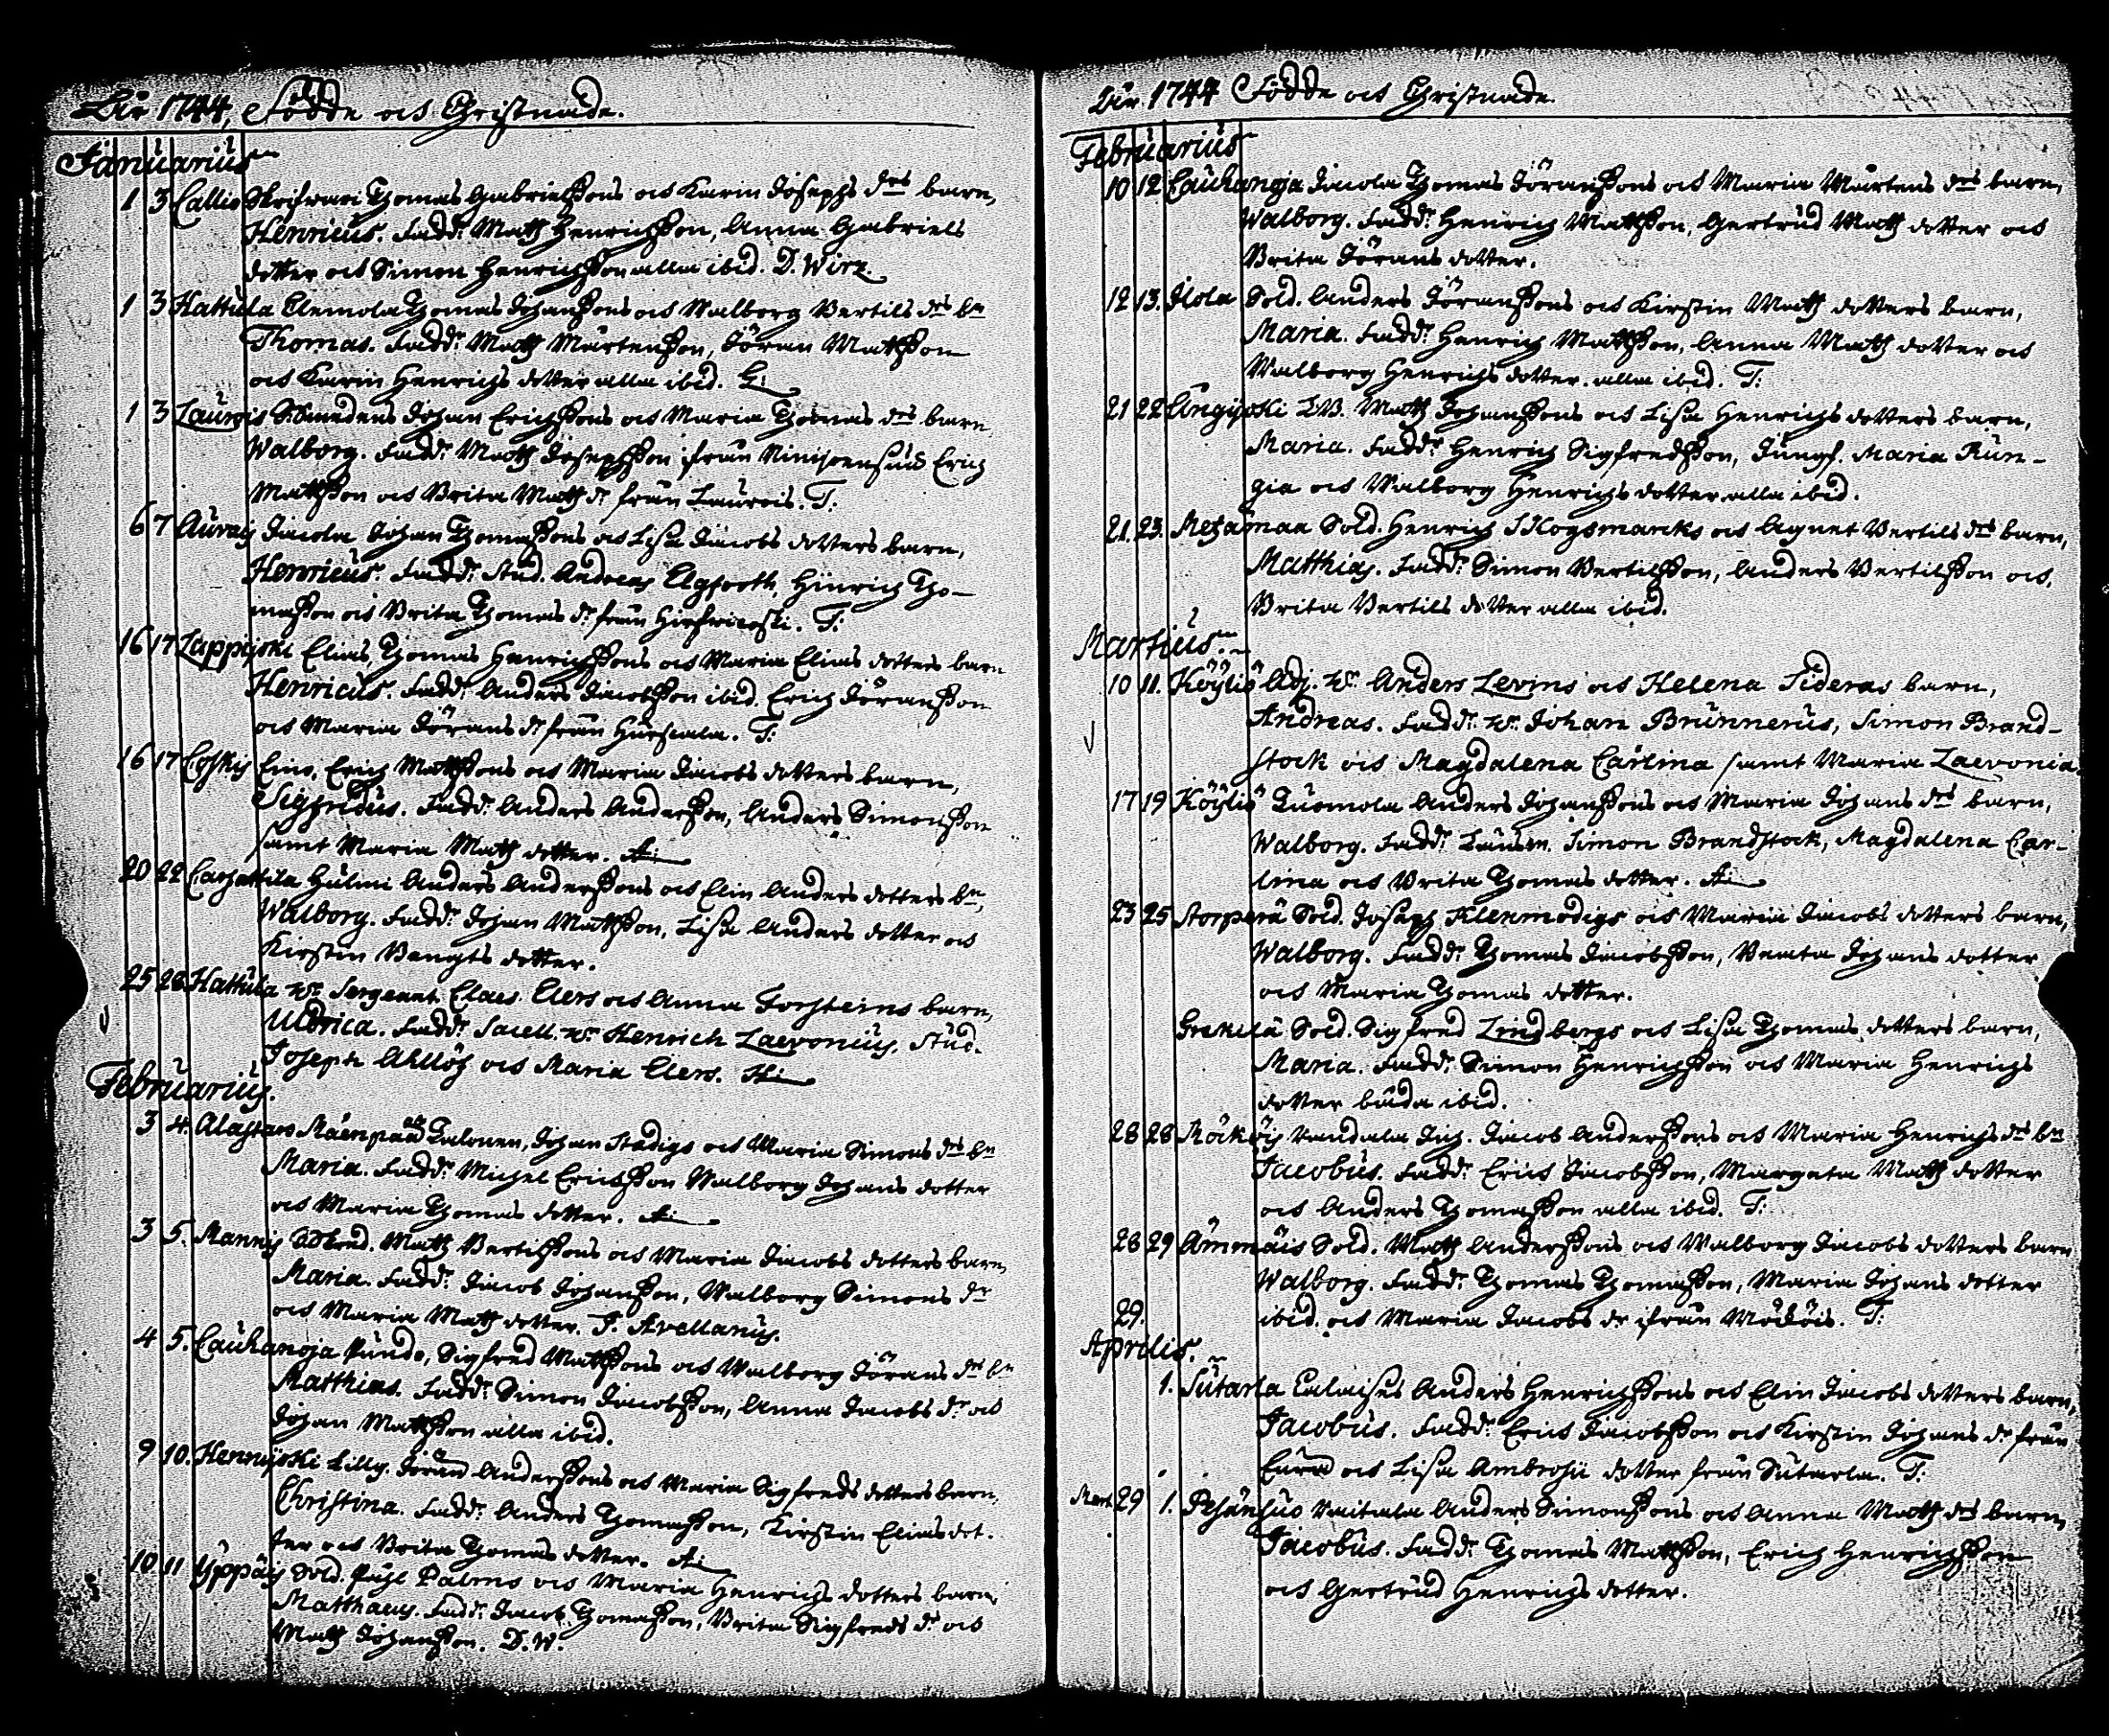 Åhr 1744, Födde och Christnade.
Januarius
1 3 Callio Skrifwari Thomas Gabrielssons och Karin Josephs drs barn,
Henricus. Fadd: Matth Henrichsson, Anna Gabriels
dotter och Simon Henrichsson alla ibid. D. Wirz.
1 3 Hattula Clemola Thomas Johanssons och Walborg Bertils drs bn
Thomas. Fadd: Matth Mårtensson, Jöran Mattsson
och Karin Henrichs dotter alla ibid.
1 3 Laurois Johan Erichssons och Maria Thomas drs barn
Walborg. Fadd: Matth Josephsson från Erich
Mattsson och Brita Matth dr från Laurois. T:
6 7 Auvais Jacola Johan Thomassons och Lisa Jacobs dotters barn,
Henricus. Fadd: Stud. Andreas Elgfooth, Hinrich Tho-
masson och Brita Thomas dr från T:
16 17 Lappijoki Elias, Thomas Henrichssons och Maria Elias dotters barn
Henricus. Fadd: Anders Jacobsson ibid. Erich Jöransson
och Maria Jörans dr från T:
16 17 Coskis Eino, Erich Mattssons och Maria Jacobs dotters barn,
Sigfridus. Fadd: Anders Andersson, Anders Simonsson
samt Maria Matth dotter. A:
20 22 Carhattila Hulmi Anders Anderssons och Elin Anders dotters bn,
Walborg. Fadd: Johan Mattsson, Lisa Anders dotter och
Kirstin Bengts dotter.
25 28 Hattula Hr Sergeant Claes Elers och Anna Torsteins barn,
Uldrica. Fadd: Sacell. Hr Henrich Laevonius, Stud.
Joseph Ahllöf och Maria Elers. H:
Februarius.
3 4. Alastaro Mäenpää Talonen, Johan Stadigs och Maria Simons drs bn
Maria. Fadd: Michel Ericksson Walborg Johans dotter
och Maria Thomas dotter. A:
3 5. Mannis Matth Bertilssons och Maria Jacobs dotters barn,
Maria. Fadd: Jacob Johansson, Walborg Simons dr
och Maria Matth dotter. J. Avellanus.
4 5. Cauhanoja Pundo, Sigfred Mattssons och Walborg Jörans dr bn
Matthias. Fadd: Simon Jacobsson, Anna Jacobs dr och
Johan Mattsson alla ibid.
9 10. Hennijoki Lilly. Jöran Anderssons och Maria Sigfreds dotters barn,
Christina. Fadd: Anders Thomasson, Kirstin Elias dot-
ter och Brita Thomas dotter. A:
10 11 Yppäis Sold. Påhl Palms och Maria Henrichs dotters barn,
Matthaeus. Fadd: Jacob Thomasson, Brita Sigfreds dr och
Matth Johansson. D. W.
Åhr 1744 Födde och Christnade.
Februarius
10 12 Cauhanoja Jacola Thomas Jöranssons och Maria Mårtens drs barn,
Walborg. Fadd: Henrich Mattsson, Gertrud Matth dotter och
Brita Jörans dotter.
12 13. Ilola Sold. Anders Jöranssons och Kirstin Matth dotters barn,
Maria. Fadd: Henrich Mattsson, Anna Matth dotter och
Walborg Henrichs dotter. alla ibid. T:
21 22 Ungijoki Matth Johanssons och Lisa Henrichs dotters barn,
Maria. Fadd: Henrich Sigfredsson, Jungf. Maria Run-
gia och Walborg Henrichs dotter alla ibid.
21. 23. Metzämaa Sold. Henrich Skogsmarcks och Agnet Bertils drs barn,
Matthias. Fadd: Simon Bertilsson, Anders Bertilsson och
Brita Bertils dotter alla ibid.
Martius.
10 11. Köyliö Adj. Hr Anders Levins och Helena Sideras barn,
Andreas. Fadd: Hr Johan Brunnerus, Simon Brand-
stock och Magdalena Carlina samt Maria Laevonia.
17 19 Köyliö Tuomola Anders Johanssons och Maria Johans drs barn,
Walborg. Fadd: Länsm. Simon Brandstock, Magdalena Car-
lina och Brita Thomas dotter. A:
23 25 Storperä Sold. Joseph Klenmodigs och Maria Jacobs dotters barn,
Walborg. Fadd: Thomas Jacobsson, Beata Johans dotter
och Maria Thomas dotter.
Grekilä Sold. Sigfred Lindbergs och Lisa Thomas dotters barn,
Maria. Fadd: Simon Henrichsson och Maria Henrichs
dotter båda ibid.
28 28 Mäcköis Vandala Jacob Anderssons och Maria Henrichs drs bn
Jacobus. Fadd: Erich Jacobsson, Margeta Matth dotter
och Anders Thomasson alla ibid. T:
28 29 Ämmäis Sold. Matth Anderssons och Walborg Jacobs dotters barn
Walborg. Fadd: Thomas Thomasson, Maria Johans dotter
29. ibid. och Maria Jacobs dr ifrån Mäcköis. T:
Aprilis.
1. Sutarla Calaises Anders Henrichssons och Elin Jacobs dotters barn,
Jacobus. Fadd: Erich Jacobsson och Kirstin Johans dr från
och Lisa Ambrosii dotter från Sutarla. T:
Mart. 29 1. Pesänsuo Vaitala Anders Simonssons och Anna Matth drs barn,
Jacobus. Fadd: Thomas Mattsson, Erich Henrichsson
och Gertrud Henrichs dotter.